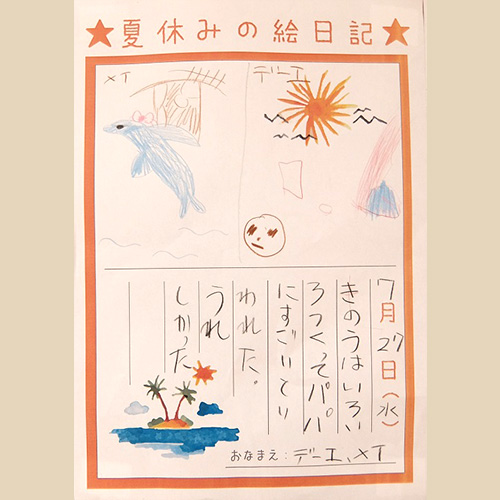 ★夏休みの絵日記★
メイ
デーエ
7月27日(水)
きのうはいろい
ろつくってパパ
にすごいてい
われた。
うれ
しかった
おなまえ：デーエ、メイ